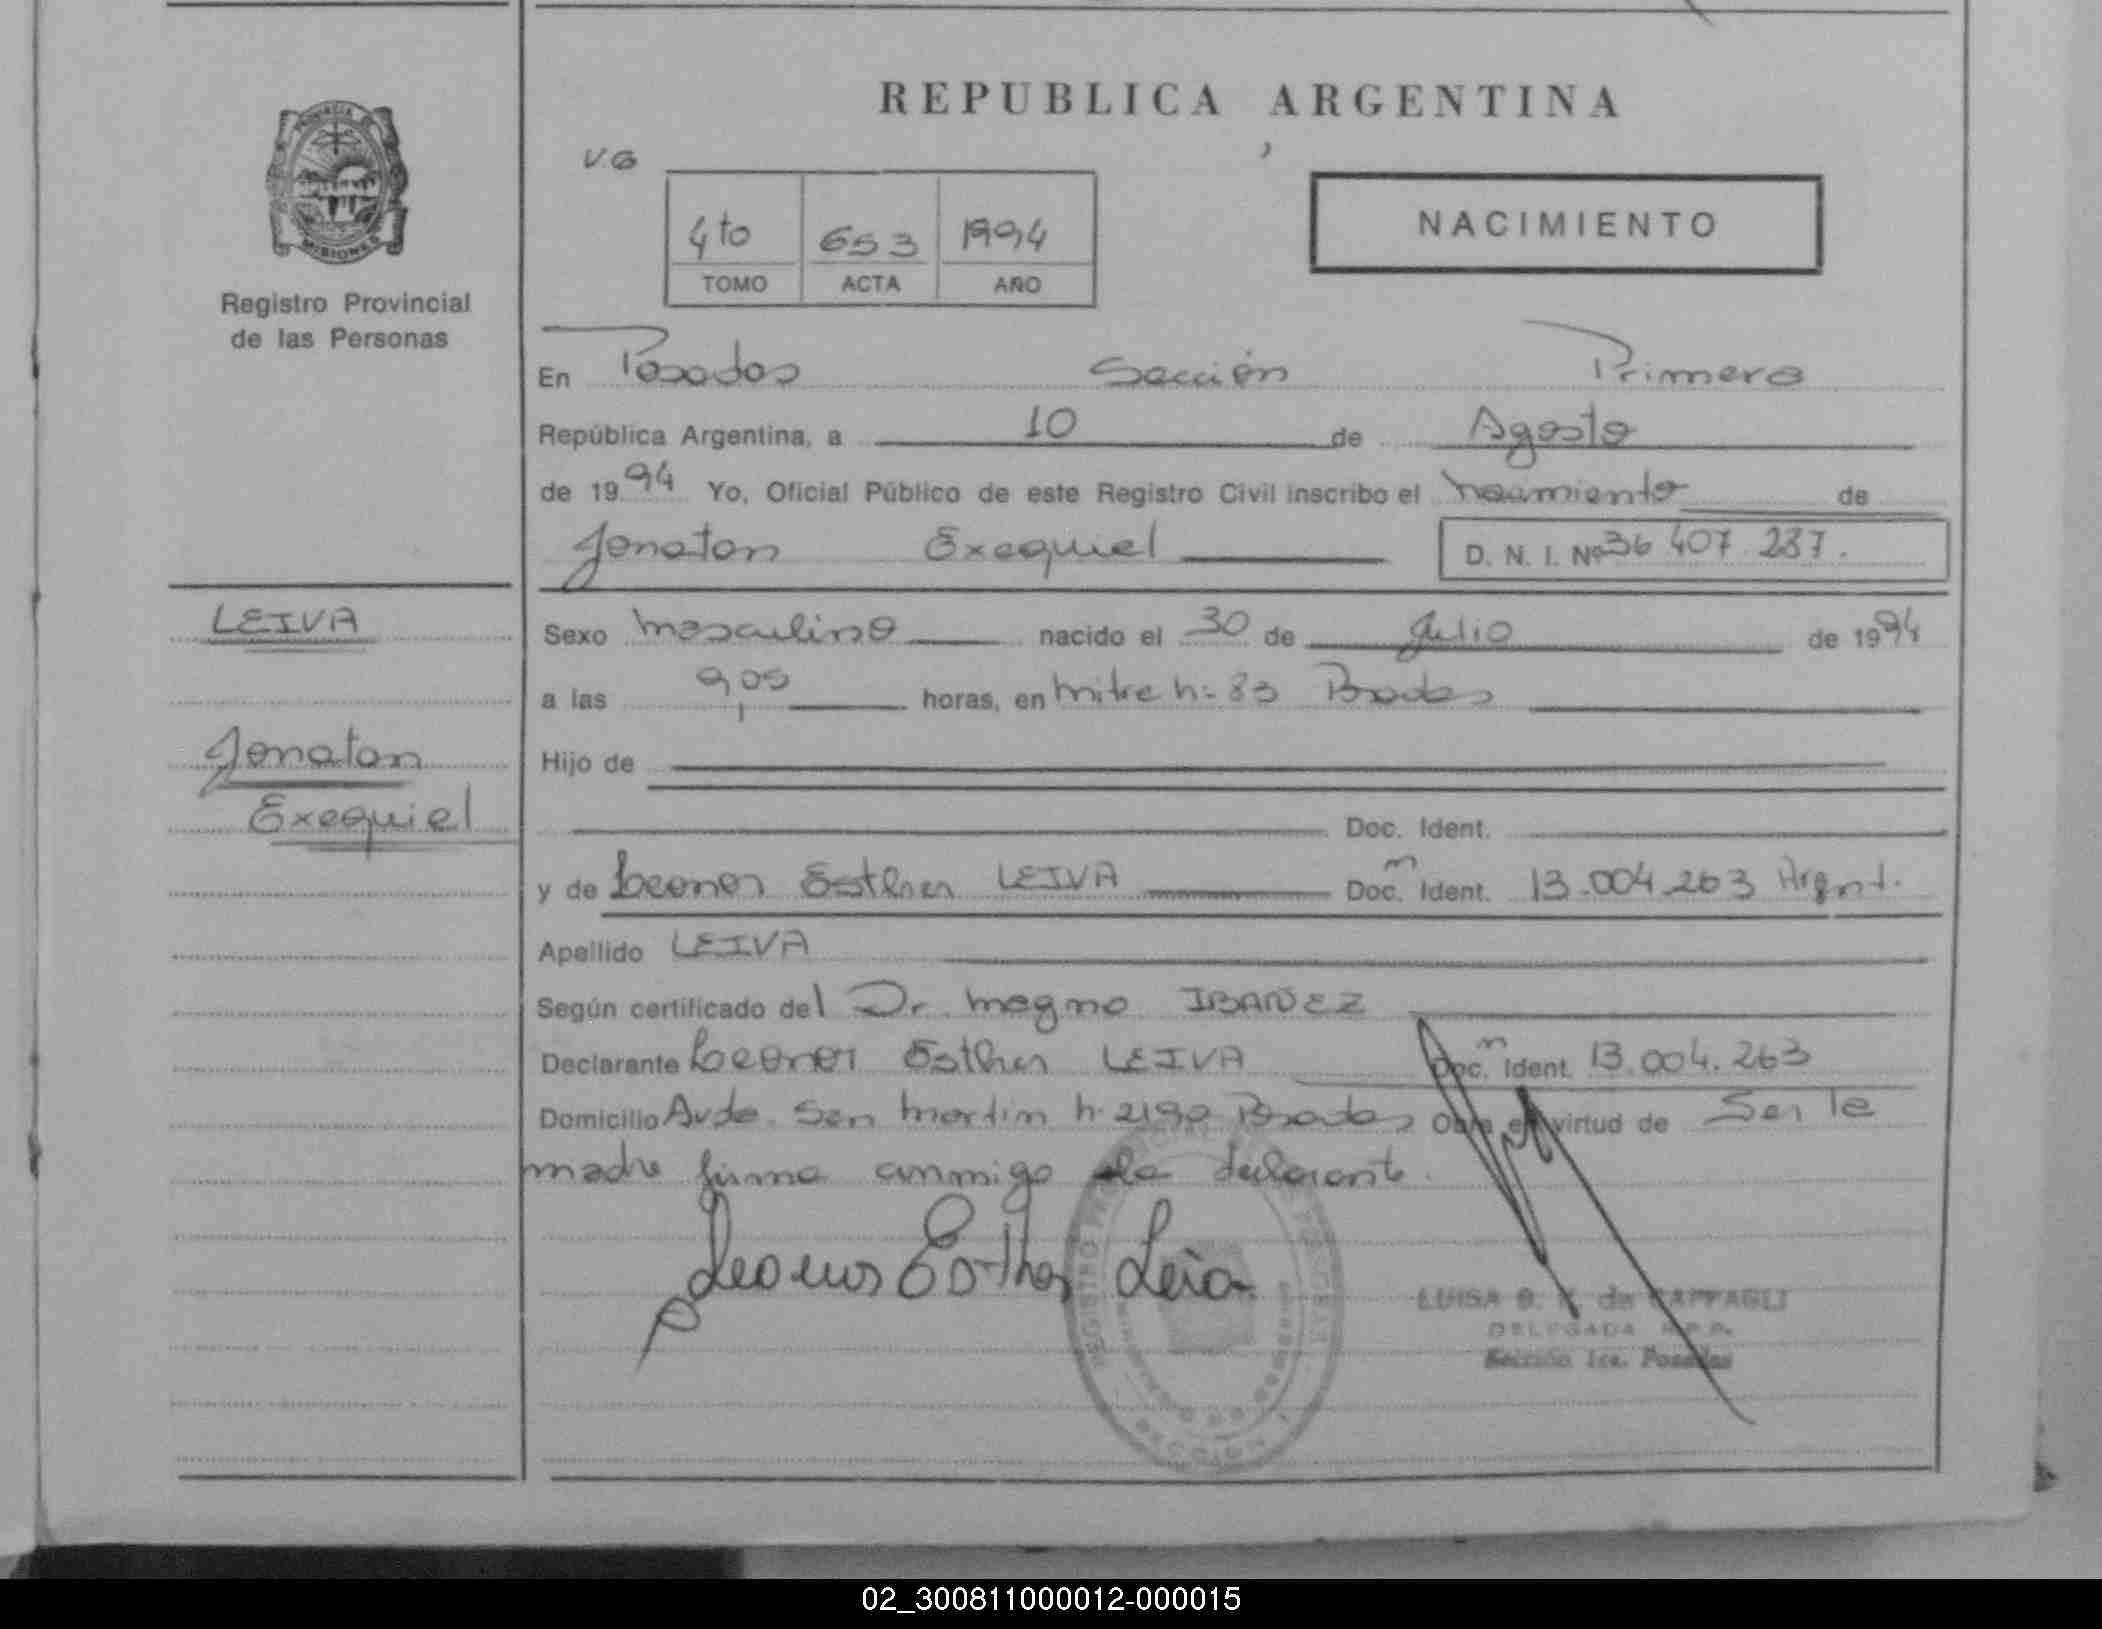 REPUBLICA ARGENTINA
PROVINCIA DE
MISIONES
Registro Provincial
de las Personas
V.G
4to 653 1994
TOMO ACTA AÑO
NACIMIENTO
En Posadas Sección Primera
República Argentina, a 10 de Agosto
de 1994 Yo, Oficial Público de este Registro Civil inscribo el nacimiento de
Jonatan Exequiel D. N. I. Nº 36 407 287.
LEIVA
Jonatan
Exequiel
Sexo masculino nacido el 30 de Julio de 1994
a las 9,05 horas, en mitre n= 83 Posadas
Hijo de
Doc. Ident.
y de Leonor Esther LEIVA Doc. Ident. 13.004.263 Argnt.
Apellido LEIVA
Según certificado del Dr. magno IBAÑEZ
Declarante Leonor Esther LEIVA Doc. Ident. 13.004.263
Domicilio Avda. San martin n. 2190 Posadas Obra en virtud de Ser la
madre firma conmigo la declarante.
Leonor Esther Leiva
REGISTRO PERSONAS
SECCION
LUISA de
DELEGADA R.P.P.
Sección 1ra. Posadas
02_300811000012-000015